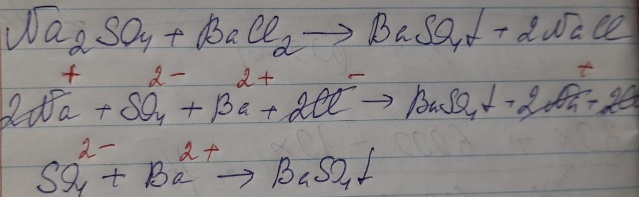 Na₂SO₄ + BaCl₂ → BaSO₄↓ + 2NaCl
2Na⁺ + SO₄²⁻ + Ba²⁺ + 2Cl⁻ → BaSO₄↓ + 2Na⁺ + 2Cl
SO₄²⁻ + Ba²⁺ → BaSO₄↓